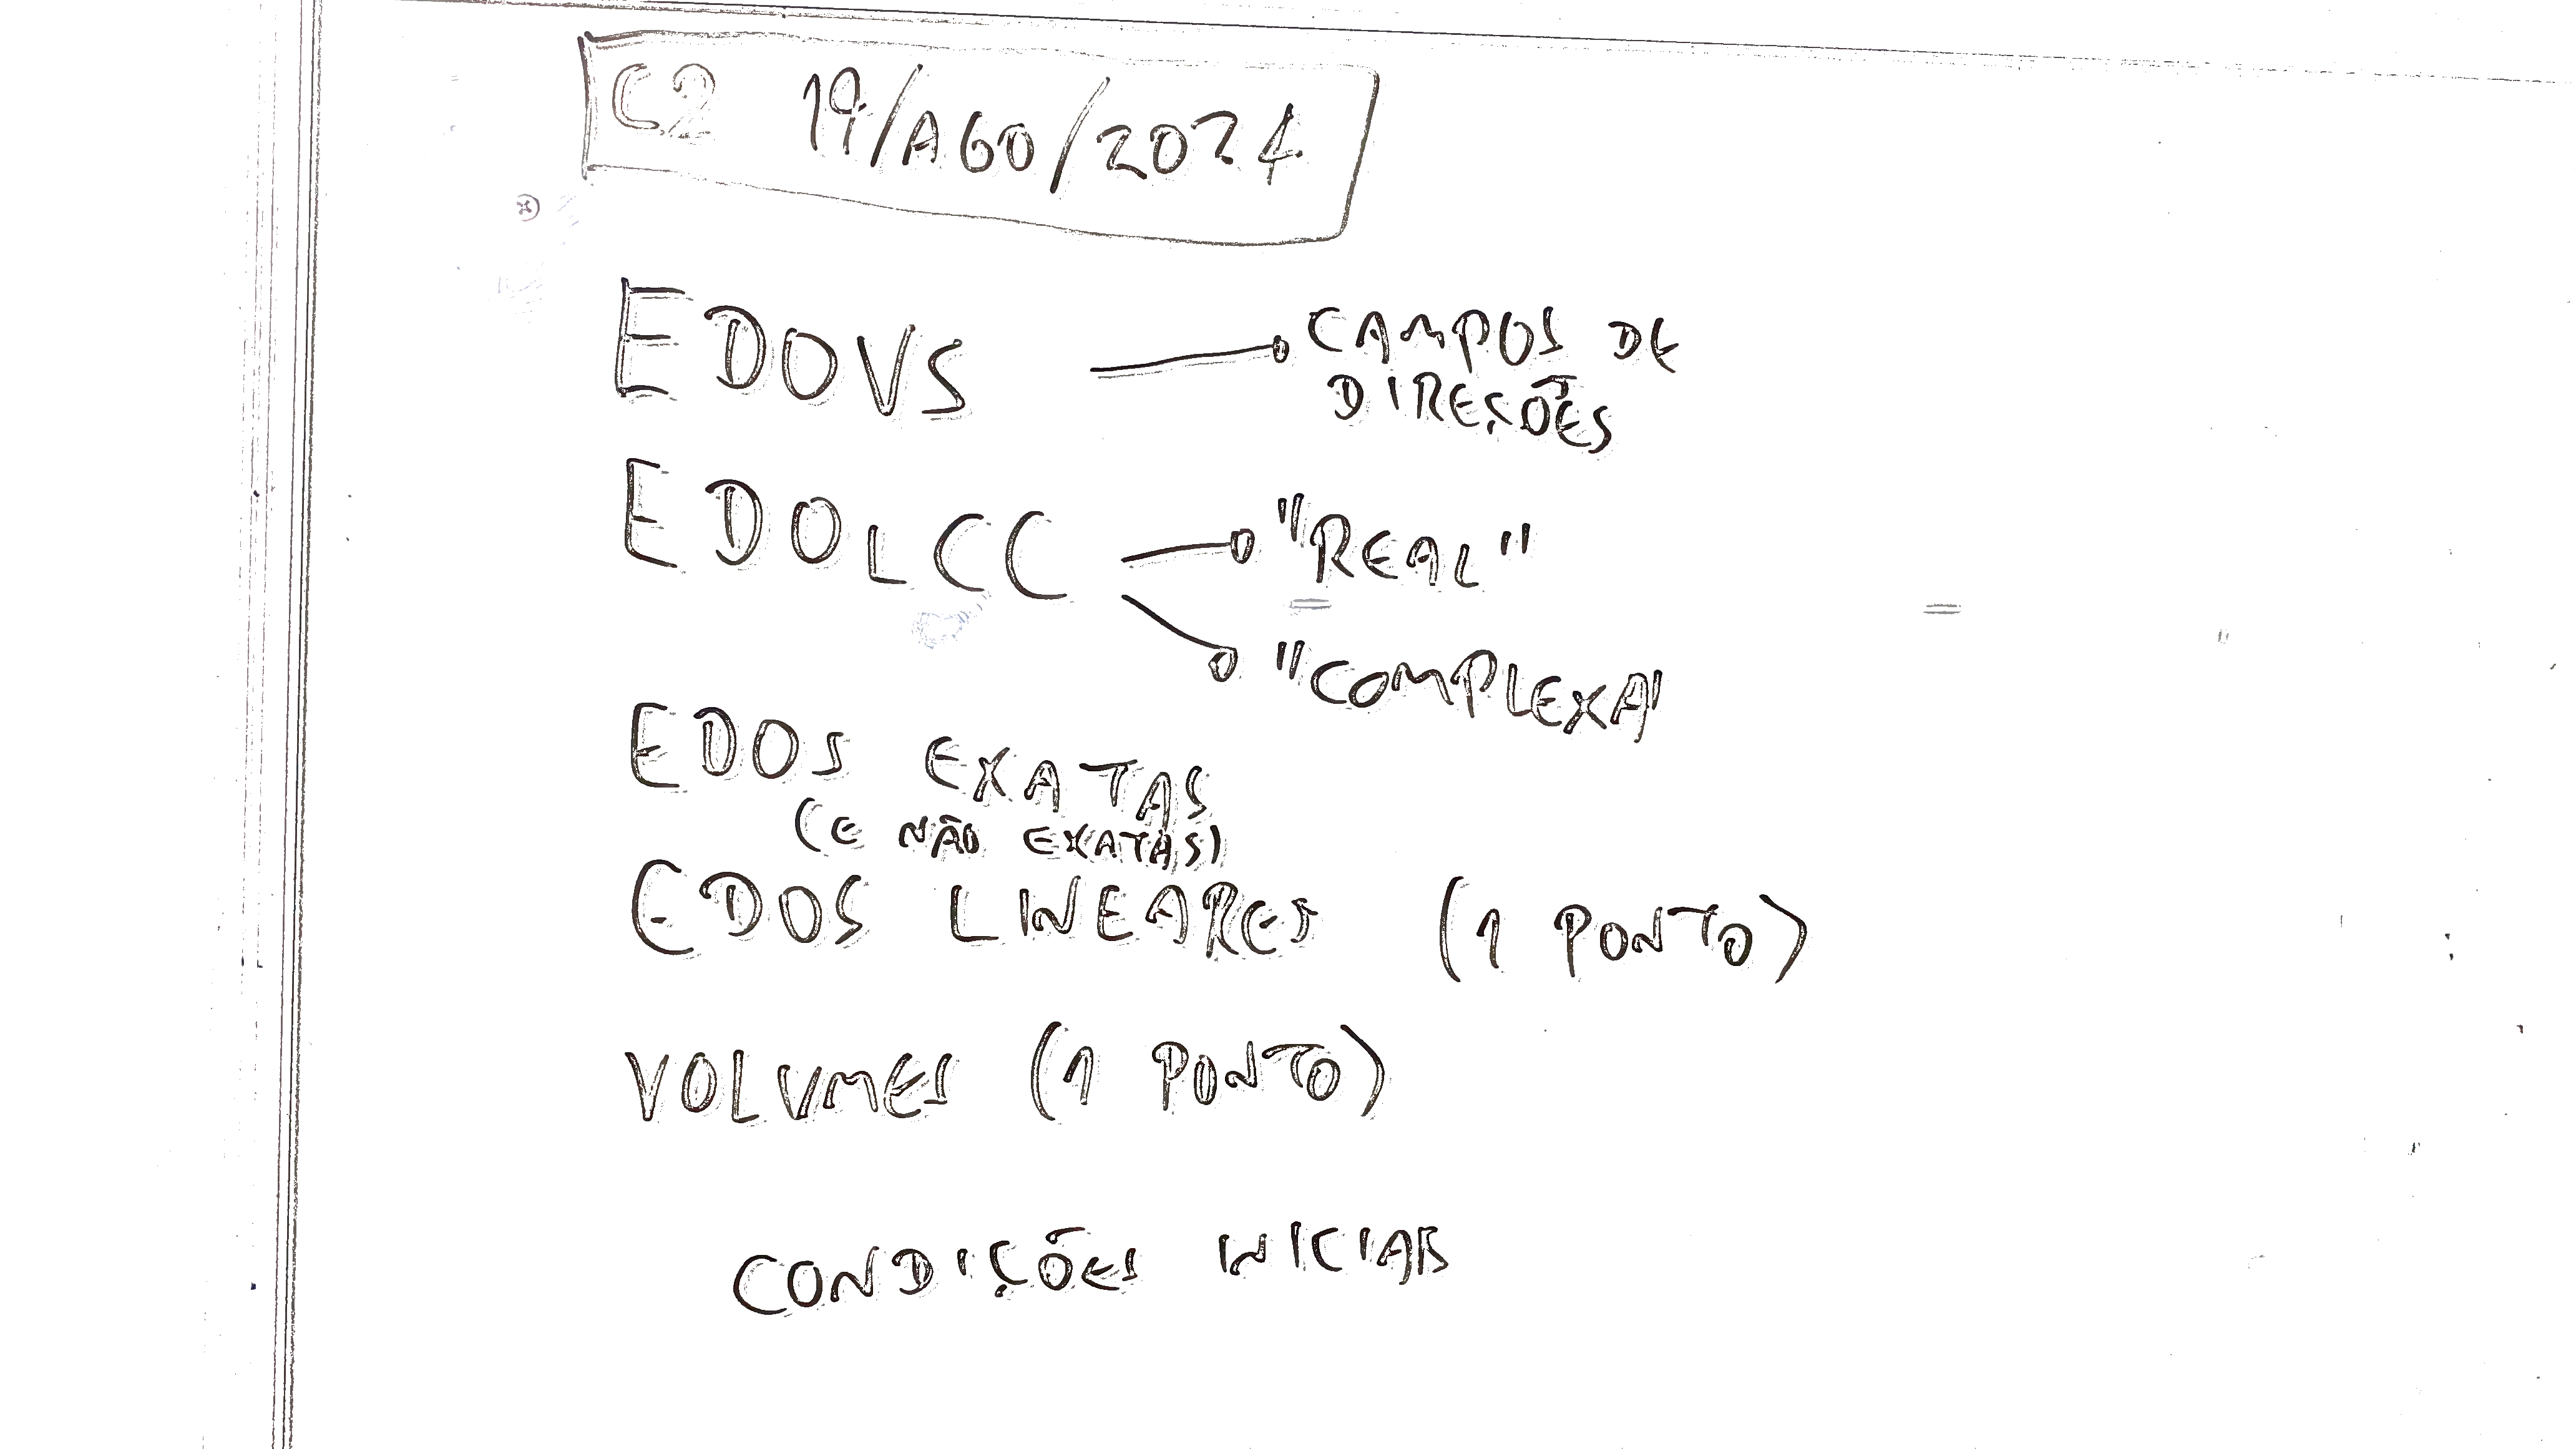 C2 19/AGO/2024
EDOVS CAMPOS DE
DIREÇÕES
EDOLCC "REAL"
"COMPLEXA"
EDOS EXATAS
(E NÃO EXATAS)
EDOS LINEARES (1 PONTO)
VOLUMES (1 PONTO)
CONDIÇÕES INICIAIS